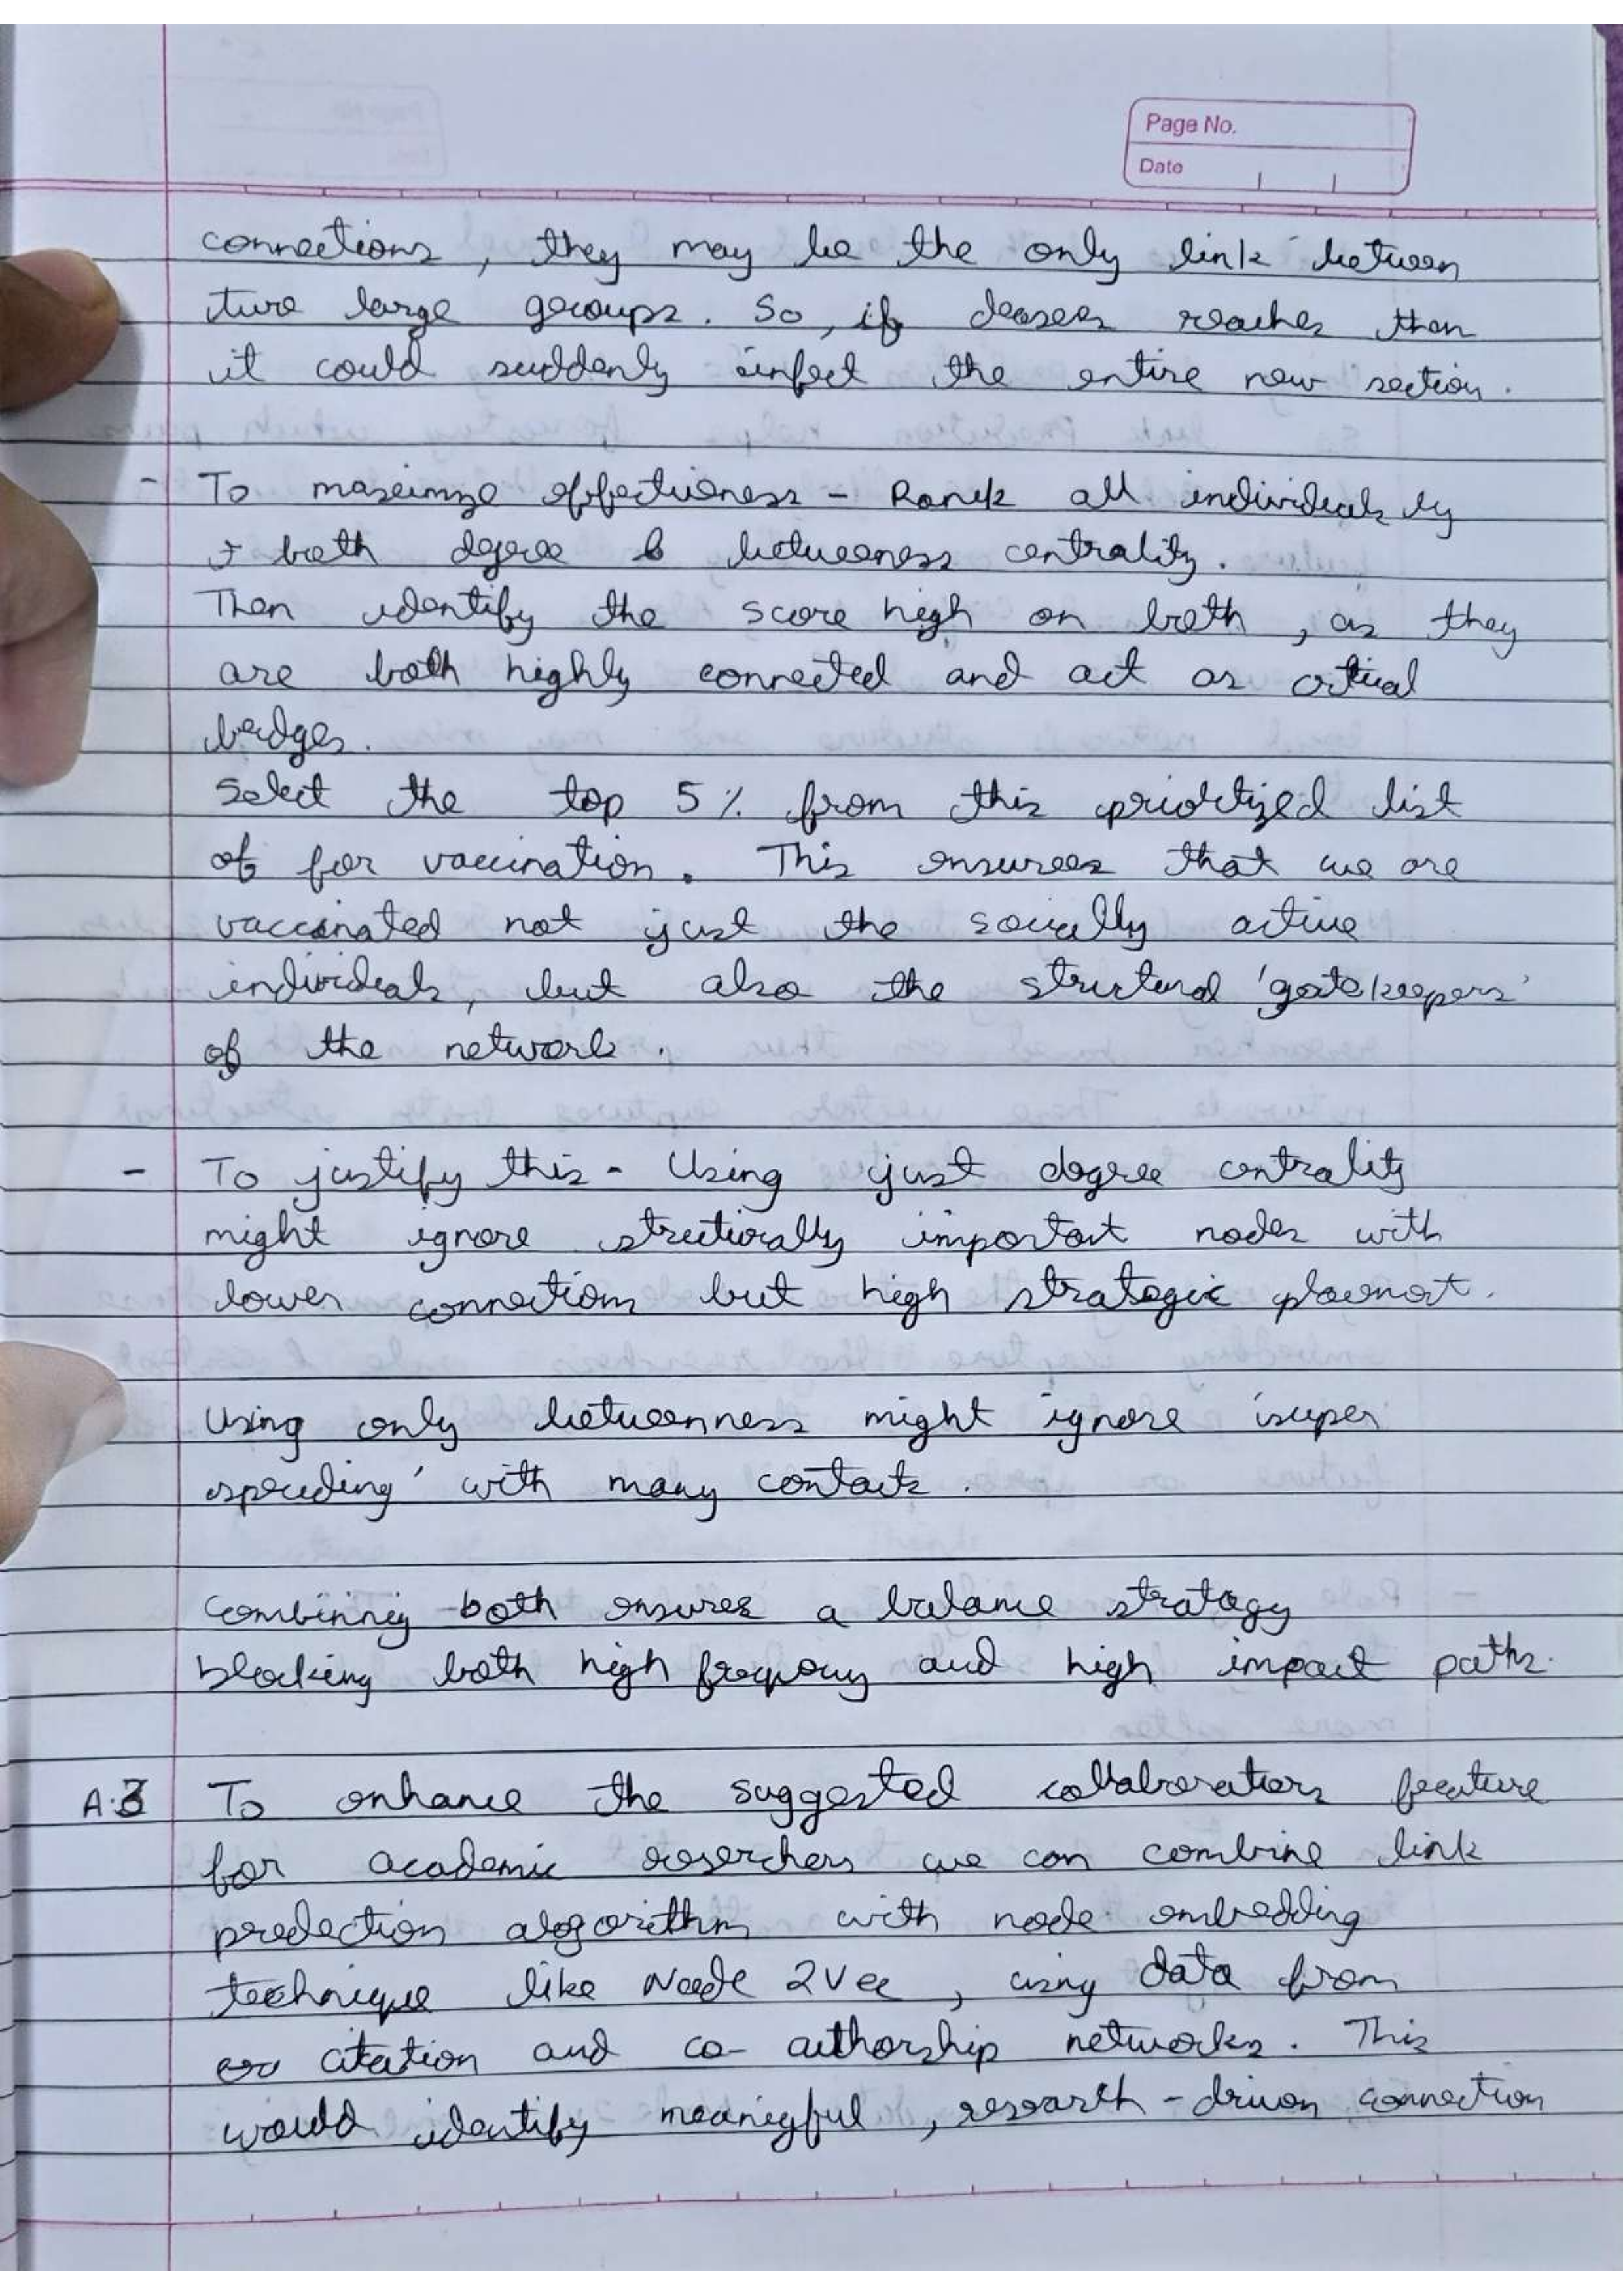 Page No.
Date
connections, they may be the only link between
two large groups. So, if deases reaches then
it could suddenly infect the entire new section.
- To maxeimze effectiveness - Rank all individeals by
both degree & betweeness centrality.
Then identify the score high on both, as they
are both highly connected and act as critical
bridges.
Select the top 5% from this priortized list
of for vaccination. This ensures that we are
vaccinated not just the socially active
individeals, but also the structural 'gatekeepers'
of the network.
- To justify this - Using just degree centrality
might ignore structurally important nodes with
lower connections but high strategic placment.
Using only betweenness might ignore 'super
spreeding' with many contacts.
Combinnig both ensures a balance strategy
blocking both high freqency and high impact paths.
A.3 To enhance the suggested collaborators feature
for academic reserchers we can combine link
predection algorithm with node embedding
technique like Node 2Vec, using data from
citation and co- authorship networks. This
would identify meanigful, research - driven connection